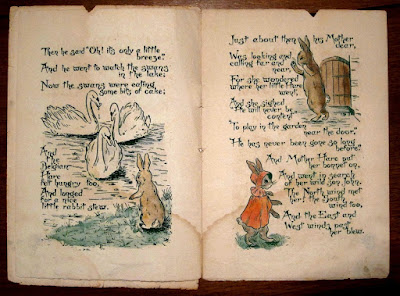 Then he said "Oh! it's only a little
breeze."
And he went to watch the swans
in the lake;
Now the swans were eating
some bits of cake;
And
The
Belgian
Hare
felt hungry too,
And longed
for a nice
little rabbit stew.
Just about then his Mother
dear,
Was looking and
calling far and
near,
For she wondered
where her little Hare
went,
And she sighed
"He will never be
content
"To play in the garden
near the door."
"He has never been gone so long
before."
And Mother Hare put
her bonnet on,
And went in search
of her wild son, John.
The North wind met
her! the South
wind too,
And the East and
West winds, past
her blew.